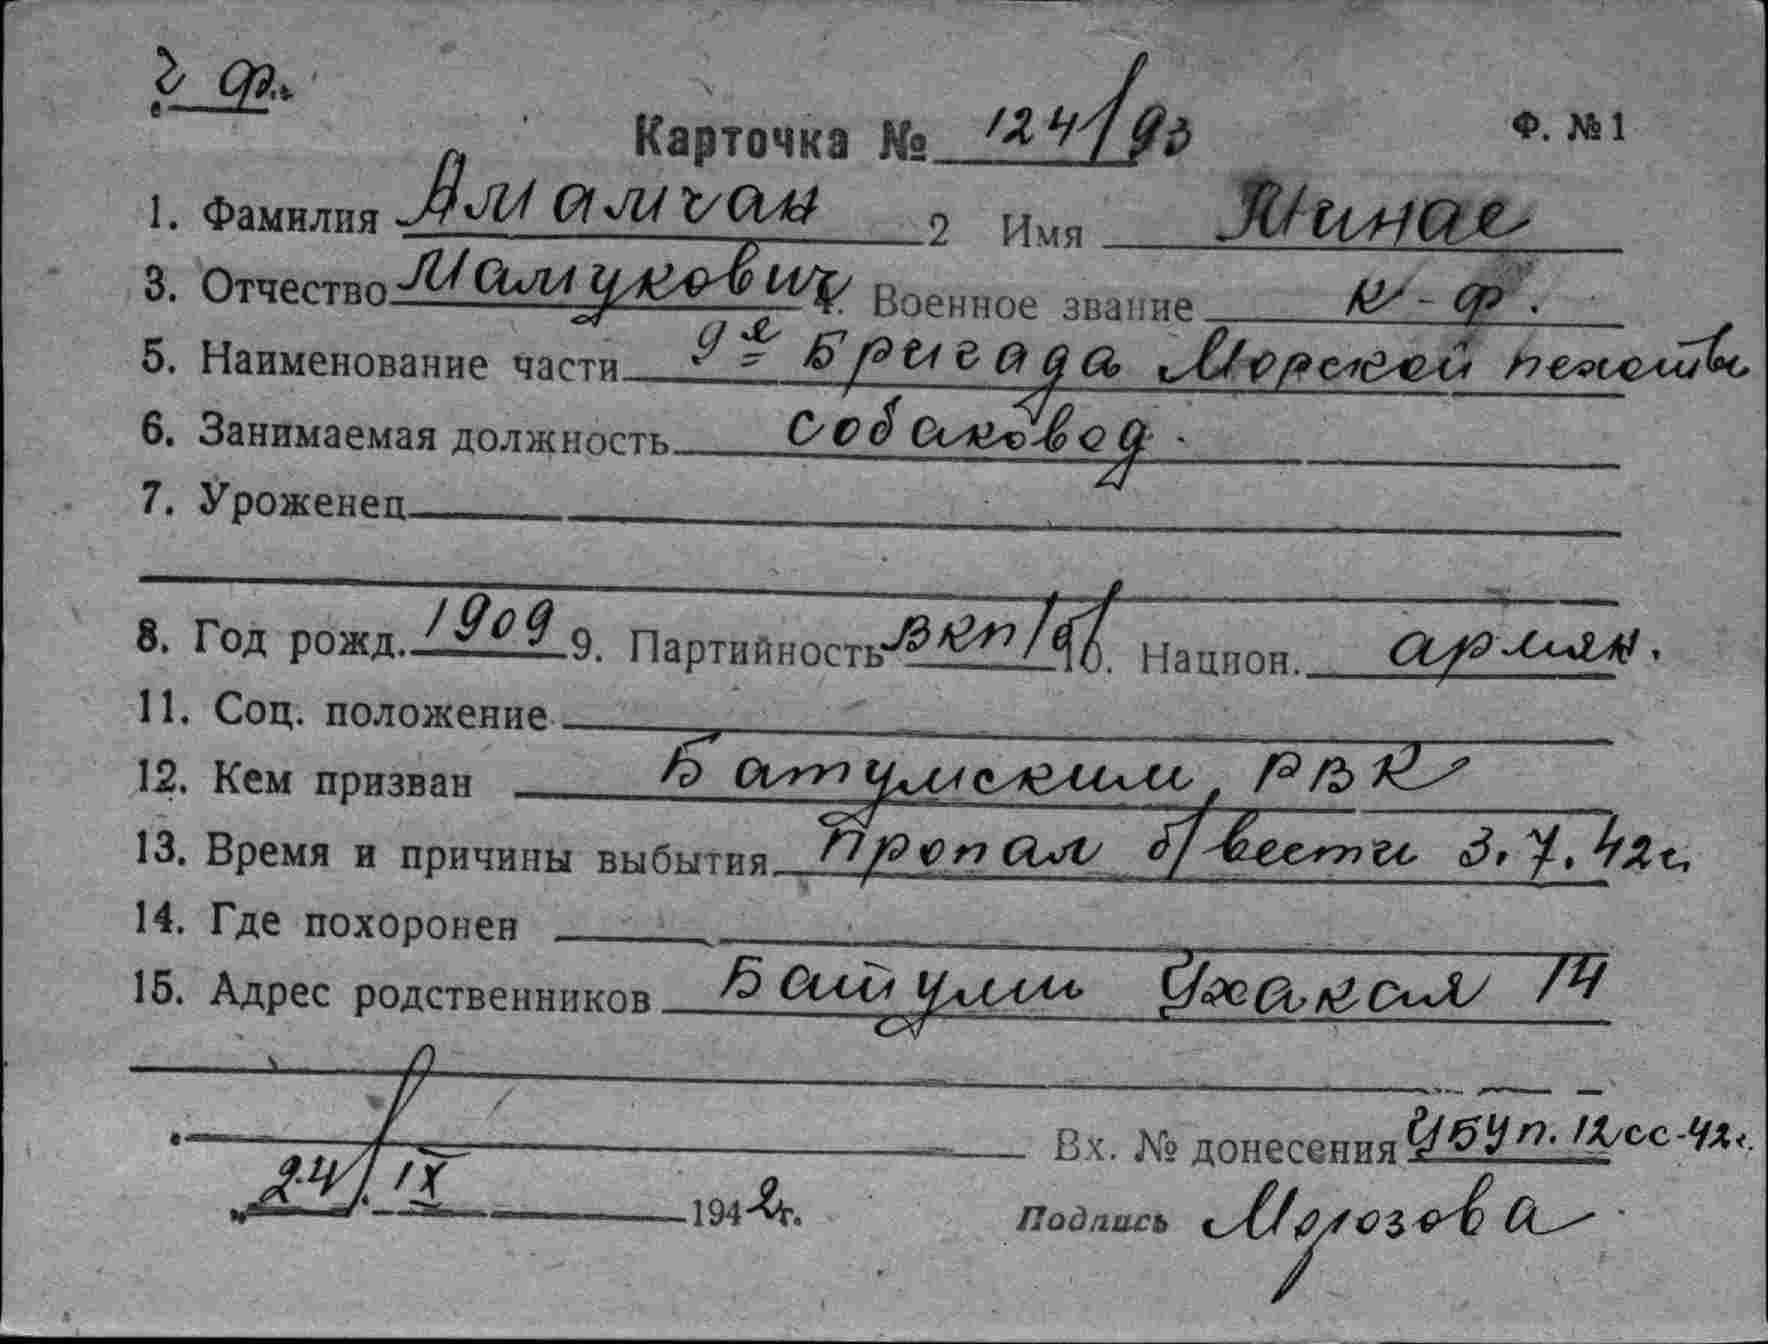 ч ф.
Карточка № 124/93 Ф. №1
1. Фамилия Амамчан 2 Имя Минас
3. Отчество Мамукович 4. Военное звание к-ф.
5. Наименование части 9я Бригада Морской пехоты
6. Занимаемая должность собаковод.
7. Уроженец
8. Год рожд. 1909 9. Партийность ВКП/б/ 10. Национ. армян.
11. Соц. положение
12. Кем призван Батумским РВК
13. Время и причины выбытия Пропал б/вести 3.7.42г.
14. Где похоронен
15. Адрес родственников Батуми Цхакая 14
Вх. № донесения УБУп. 12сс-42г.
„24/IX 1942г. Подпись Морозова